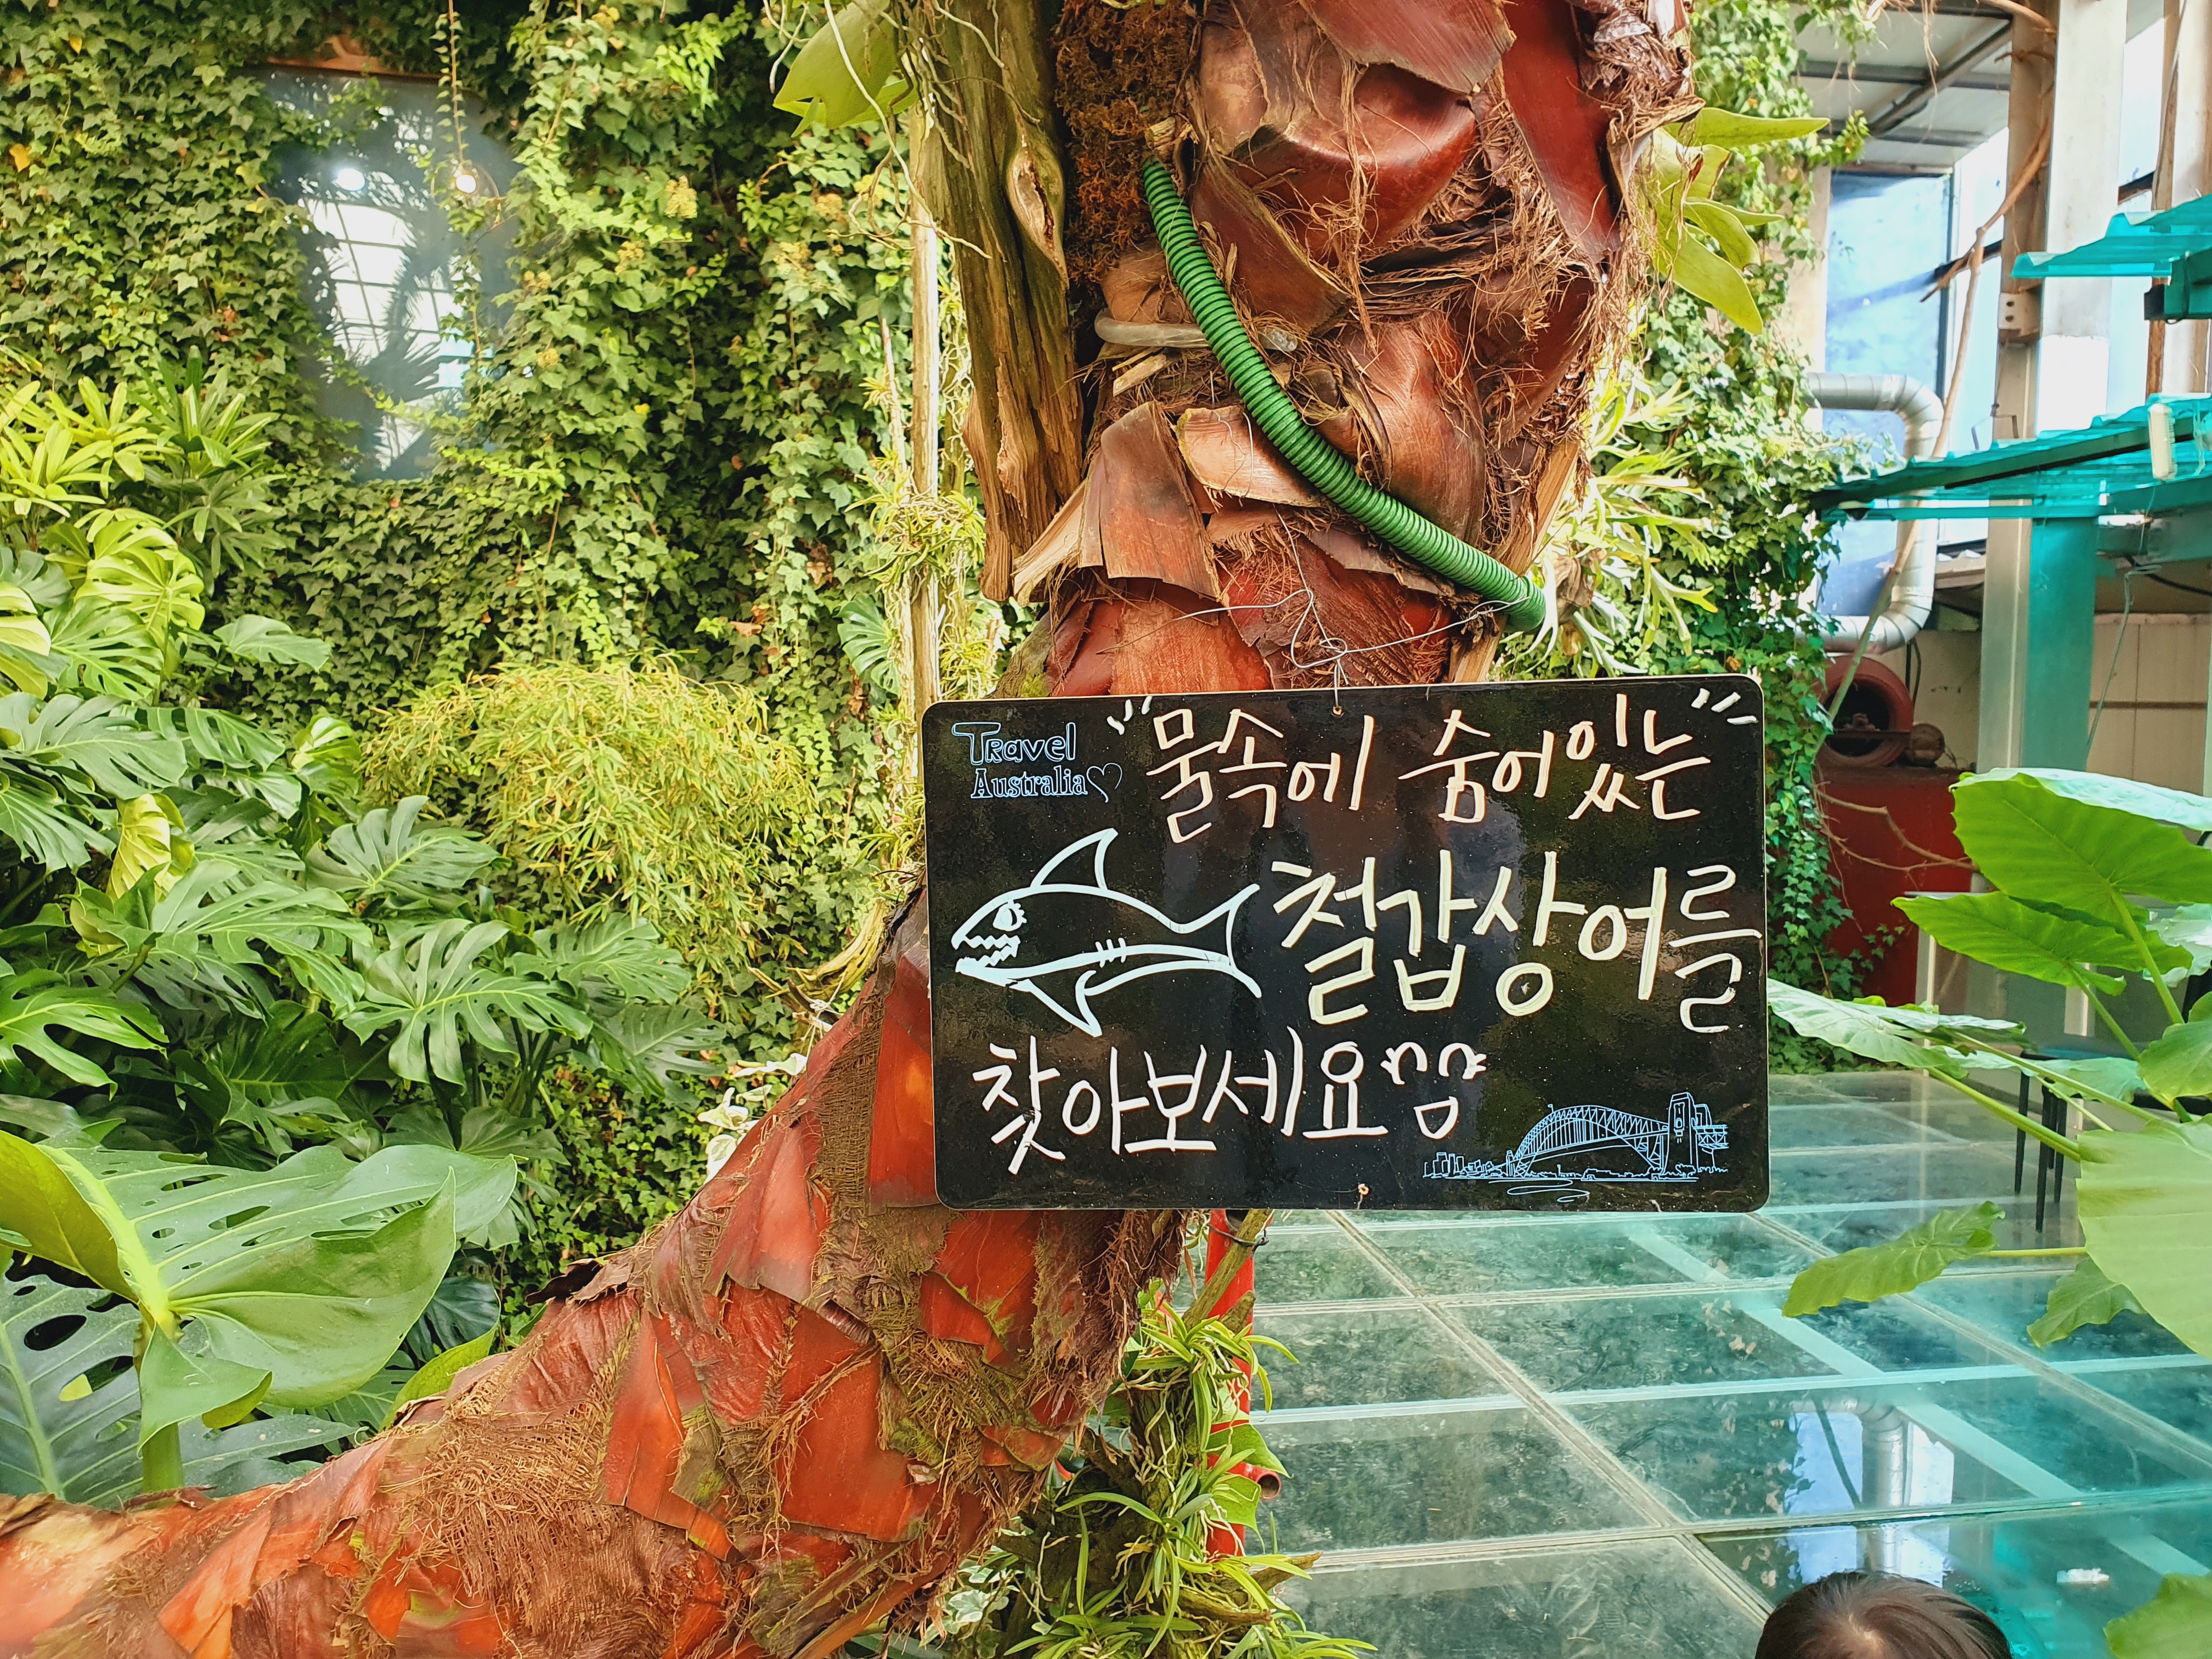 Travel
Australia♡
"물속에 숨어있는"
철갑상어를
찾아보세요^^